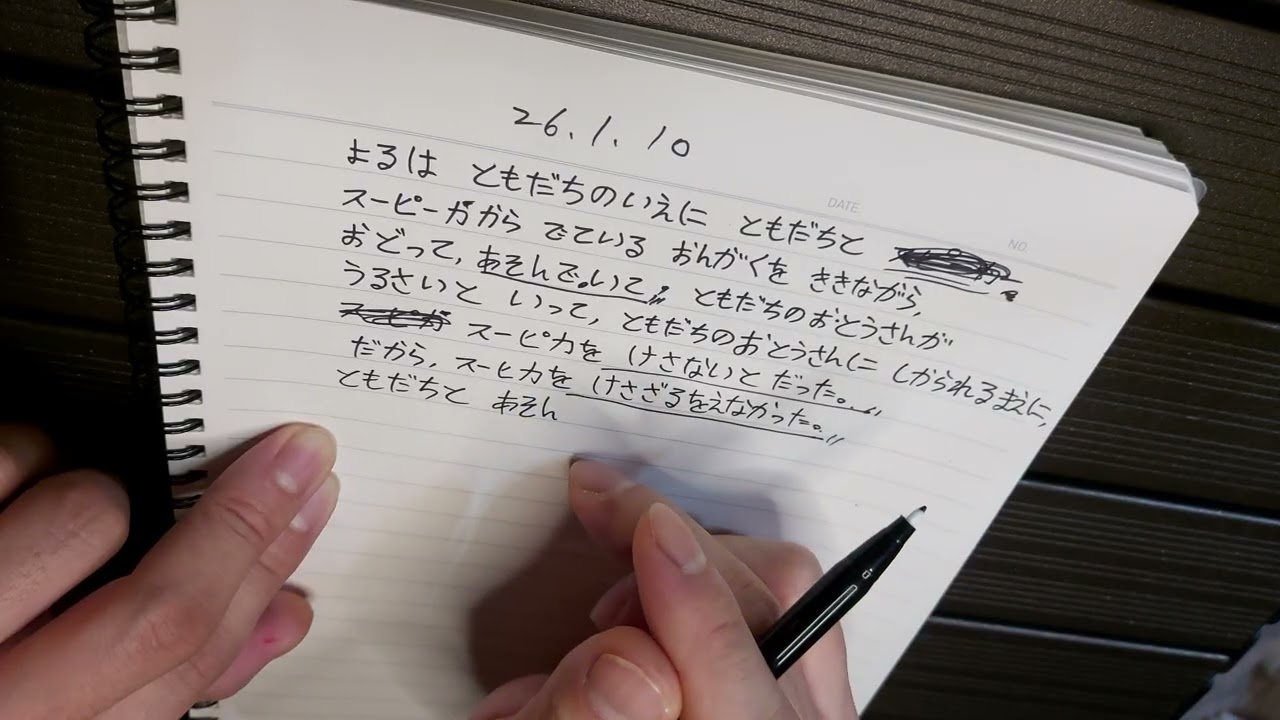 26.1.10
DATE
NO.
よるは ともだちのいえに ともだちと
スーピーガから でている おんがくを ききながら,
おどって, あそんで。いて, ともだちのおとうさんが
うるさいと いって, ともだちのおとうさんに しかられるまえに,
スーピカを けさないと だった。
だから, スーヒカを けさざるをえなかった。
ともだちと あそん